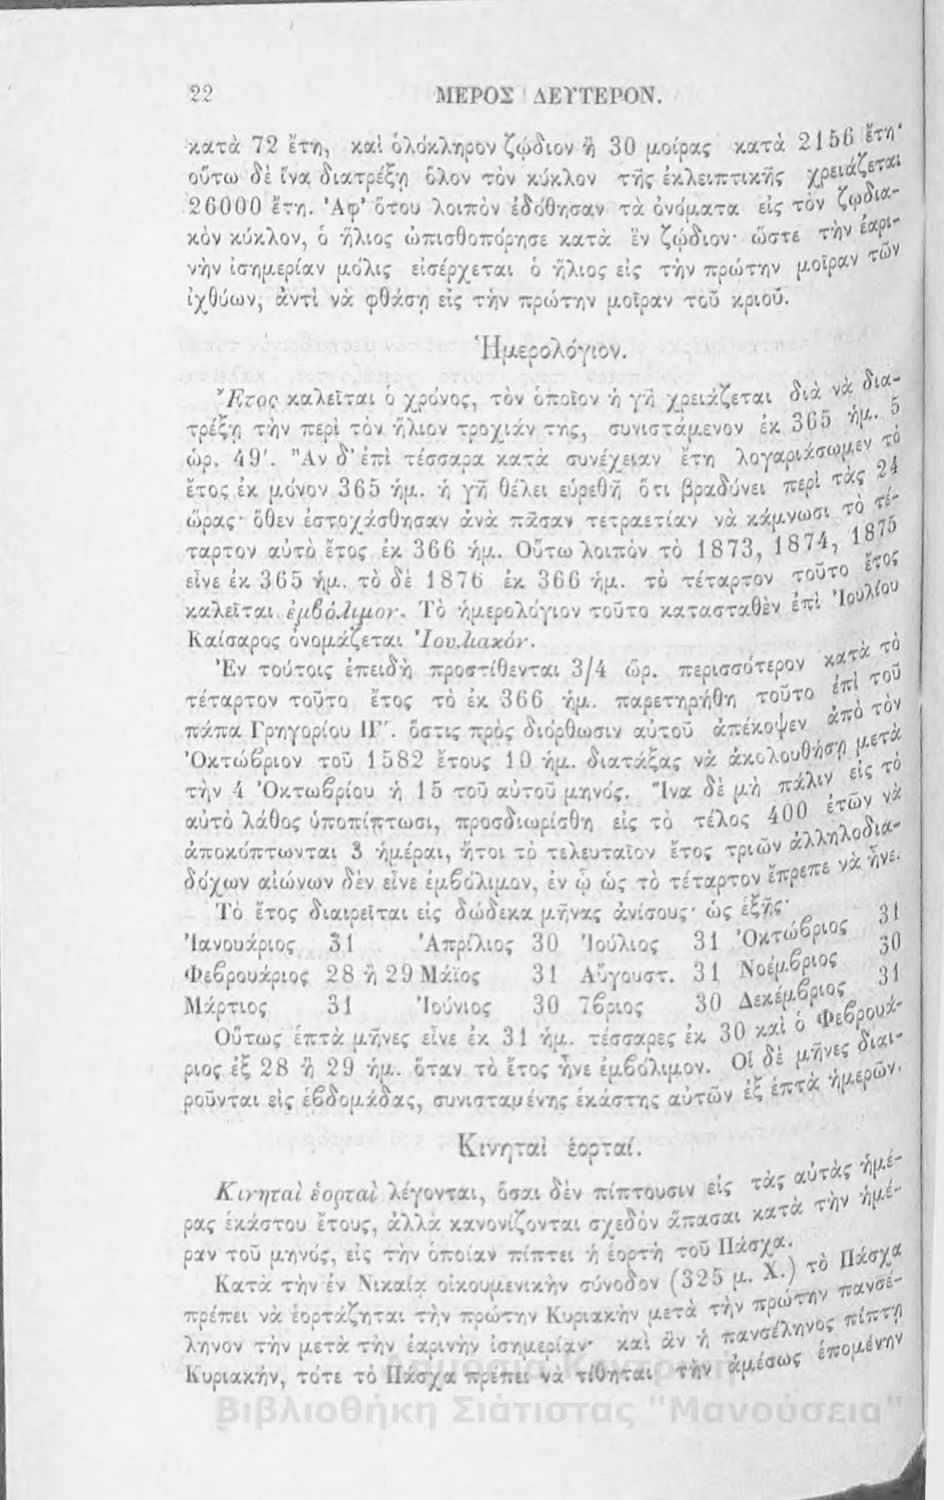 22 ΜΕΡΟΣ ΔΕΥΤΕΡΟΝ.
κατὰ 72 ἔτη, καὶ ὁλόκληρον ζῴδιον ἢ 30 μοίρας κατὰ 2156 ἔτη·
οὕτω δὲ ἵνα διατρέξῃ ὅλον τὸν κύκλον τῆς ἐκλειπτικῆς χρειάζεται
26000 ἔτη. Ἀφ' ὅτου λοιπὸν ἐδόθησαν τὰ ὀνόματα εἰς τὸν ζῳδια-
κὸν κύκλον, ὁ ἥλιος ὠπισθοπόρησε κατὰ ἓν ζῴδιον· ὥστε τὴν ἐαρι-
νὴν ἰσημερίαν μόλις εἰσέρχεται ὁ ἥλιος εἰς τὴν πρώτην μοῖραν τῶν
ἰχθύων, ἀντὶ νὰ φθάσῃ εἰς τὴν πρώτην μοῖραν τοῦ κριοῦ.
Ἡμερολόγιον.
Ἔτος καλεῖται ὁ χρόνος, τὸν ὁποῖον ἡ γῆ χρειάζεται διὰ νὰ δια-
τρέξῃ τὴν περὶ τὸν ἥλιον τροχιάν της, συνιστάμενον ἐκ 365 ἡμ. 5
ὡρ. 49'. Ἂν δ' ἐπὶ τέσσαρα κατὰ συνέχειαν ἔτη λογαριάσωμεν τὸ
ἔτος ἐκ μόνον 365 ἡμ. ἡ γῆ θέλει εὑρεθῆ ὅτι βραδύνει περὶ τὰς 24
ὥρας· ὅθεν ἐστοχάσθησαν ἀνὰ πᾶσαν τετραετίαν νὰ κάμνωσι τὸ τέ-
ταρτον αὐτὸ ἔτος ἐκ 366 ἡμ. Οὕτω λοιπὸν τὸ 1873, 1874, 1875
εἶνε ἐκ 365 ἡμ. τὸ δὲ 1876 ἐκ 366 ἡμ. τὸ τέταρτον τοῦτο ἔτος
καλεῖται ἐμβόλιμον. Τὸ ἡμερολόγιον τοῦτο κατασταθὲν ἐπὶ Ἰουλίου
Καίσαρος ὀνομάζεται Ἰουλιακόν.
Ἐν τούτοις ἐπειδὴ προστίθενται 3/4 ὥρ. περισσότερον κατὰ τὸ
τέταρτον τοῦτο ἔτος τὸ ἐκ 366 ἡμ. παρετηρήθη τοῦτο ἐπὶ τοῦ
πάπα Γρηγορίου ΙΓ'. ὅστις πρὸς διόρθωσιν αὐτοῦ ἀπέκοψεν ἀπὸ τὸν
Ὀκτώβριον τοῦ 1582 ἔτους 10 ἡμ. διατάξας νὰ ἀκολουθήσῃ μετὰ
τὴν 4 Ὀκτωβρίου ἡ 15 τοῦ αὐτοῦ μηνός. Ἵνα δὲ μὴ πάλιν εἰς τὸ
αὐτὸ λάθος ὑποπίπτωσι, προσδιωρίσθη εἰς τὸ τέλος 400 ἐτῶν νὰ
ἀποκόπτωνται 3 ἡμέραι, ἤτοι τὸ τελευταῖον ἔτος τριῶν ἀλληλοδια-
δόχων αἰώνων δὲν εἶνε ἐμβόλιμον, ἐν ᾧ ὡς τὸ τέταρτον ἔπρεπε νὰ ἦνε.
Τὸ ἔτος διαιρεῖται εἰς δώδεκα μῆνας ἀνίσους· ὡς ἑξῆς·
Ἰανουάριος 31 Ἀπρίλιος 30 Ἰούλιος 31 Ὀκτώβριος 31
Φεβρουάριος 28 ἢ 29 Μάϊος 31 Αὔγουστ. 31 Νοέμβριος 30
Μάρτιος 31 Ἰούνιος 30 7βριος 30 Δεκέμβριος 31
Οὕτως ἑπτὰ μῆνες εἶνε ἐκ 31 ἡμ. τέσσαρες ἐκ 30 καὶ ὁ Φεβρουά-
ριος ἐξ 28 ἢ 29 ἡμ. ὅταν τὸ ἔτος ἦνε ἐμβόλιμον. Οἱ δὲ μῆνες διαι-
ροῦνται εἰς ἑβδομάδας, συνισταμένης ἑκάστης αὐτῶν ἐξ ἑπτὰ ἡμερῶν.
Κινηταὶ ἑορταί.
Κινηταὶ ἑορταὶ λέγονται, ὅσαι δὲν πίπτουσιν εἰς τὰς αὐτὰς ἡμέ-
ρας ἑκάστου ἔτους, ἀλλὰ κανονίζονται σχεδὸν ἅπασαι κατὰ τὴν ἡμέ-
ραν τοῦ μηνός, εἰς τὴν ὁποίαν πίπτει ἡ ἑορτὴ τοῦ Πάσχα.
Κατὰ τὴν ἐν Νικαίᾳ οἰκουμενικὴν σύνοδον (325 μ. Χ.) τὸ Πάσχα
πρέπει νὰ ἑορτάζηται τὴν πρώτην Κυριακὴν μετὰ τὴν πρώτην πανσέ-
ληνον τὴν μετὰ τὴν ἐαρινὴν ἰσημερίαν· καὶ ἂν ἡ πανσέληνος πίπτῃ
Κυριακήν, τότε τὸ Πάσχα πρέπει νὰ τίθηται τὴν ἀμέσως ἑπομένην
Δημόσια Κεντρική
Βιβλιοθήκη Σιάτιστας "Μανούσεια"